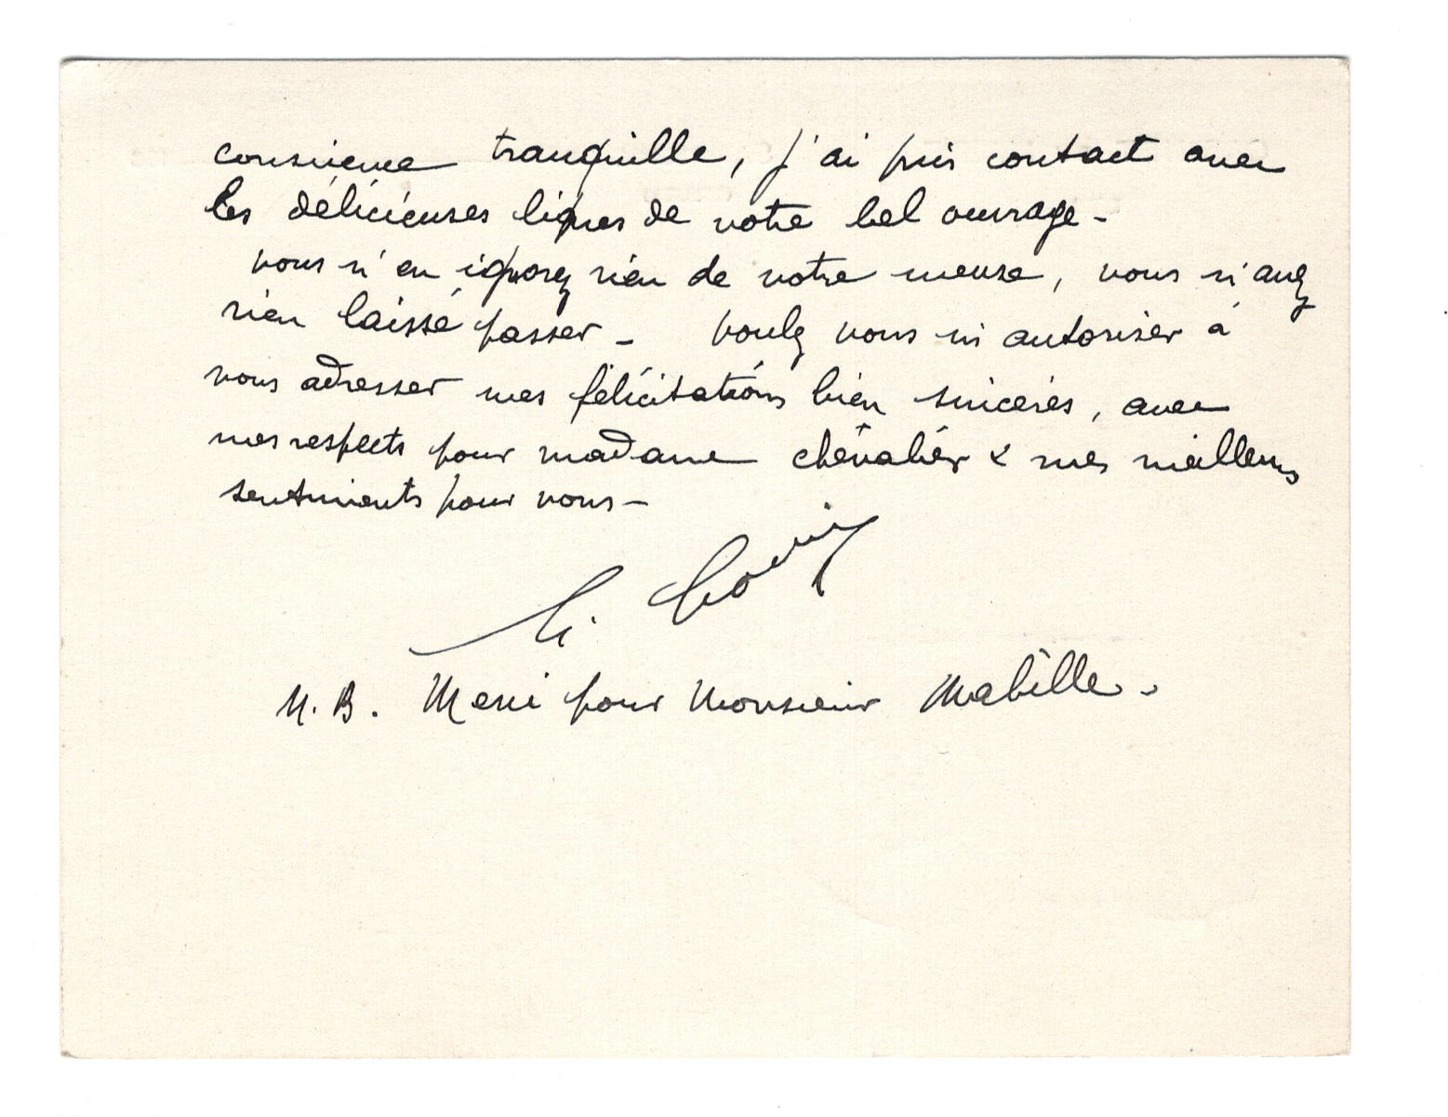 conscience tranquille, j'ai pris contact avec
les délicieuses lignes de votre bel ouvrage -
vous n'en ignorez rien de votre meuse, vous n'avez
rien laissé passer - voulez vous m'autoriser à
vous adresser mes félicitations bien sincères, avec
mes respects pour madame chevalier & mes meilleurs
sentiments pour vous -
N.B. Merci pour Monsieur Mabille -